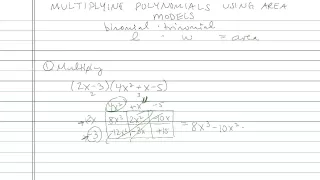 MULTIPLYING POLYNOMIALS USING AREA
MODELS
binomial · trinomial
l · w = area
① Multiply
(2x-3)(4x²+x-5)
2 3
4x² +x -5
2x 8x³ 2x² -10x
-3 -12x² -3x +15
= 8x³-10x²